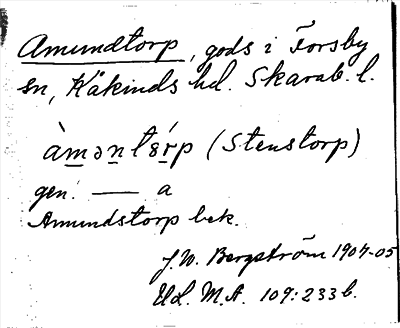 Amundtorp, gods i Forsby
sn, Kåkinds hd. Skarab. l.
àməntȣ́rp (Stenstorp)
gen. — a
Amundstorp bek.
J. W. Bergström 1904-05
Ul. M. A. 109:233 b.